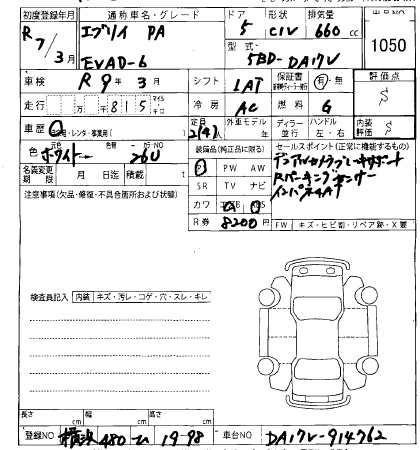 初度登録年月 通称車名・グレード ドア 形状 排気量 出品NO
R7/3月 エブリイ PA 5 CIV 660 cc 1050
EVAD-6 型式 5BD-DA17V
車検 R9年3月 シフト 1AT 保証書 有・無 評価点 S
走行 815 マイル キロ 冷房 AC 燃料 G
車歴 自家用・レンタ・事業用 定員 2(4)人 外車モデル 年 ディーラー 並行 ハンドル 左・右 内装評価 S
色 元色 ホワイト 色 カラーNO 26U 装備品(純正品に限る) セールスポイント(正常に機能するもの)
名義変更期限 月 日迄 積載 t PS PW AW デュアルカメラブレーキサポート
注意事項(欠品・修復・不具合箇所および状態) SR TV ナビ Rパーキングセンサー
カワ エアB ABS インパネ4AT
R券 8200円 FW キズ・ヒビ割・リペア跡・X要
検査員記入 内装 キズ・汚レ・コゲ・穴・スレ・キレ
長さ cm 幅 cm 高さ cm
登録NO 横浜 480 ひ 19-98 車台NO DA17V-914762